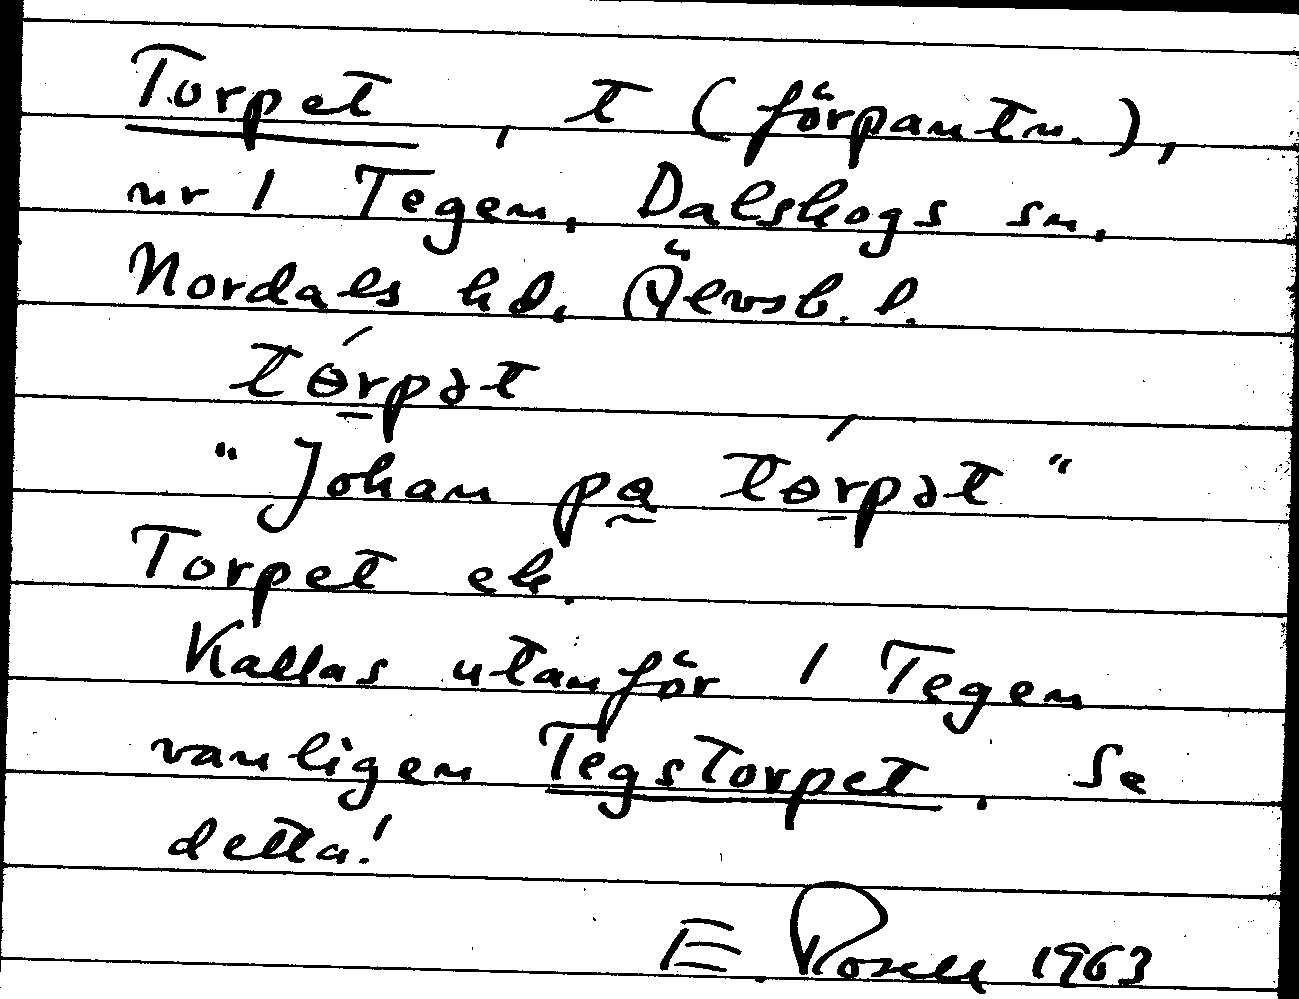 Torpet, t (förpantn.),
nr 1 Tegen, Dalskogs sn,
Nordals hd, Älvsb. l.
tɵ́rpət
"Johan pa tɵ́rpət"
Torpet ek.
Kallas utanför 1 Tegen
vanligen Tegstorpet. Se
detta!
E. Rosell 1963